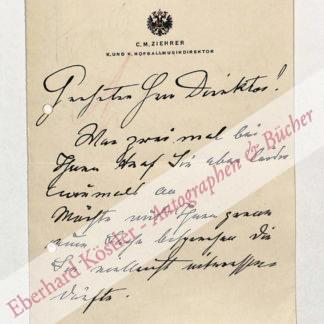 C. M. ZIEHRER
K. UND K. HOFBALLMUSIKDIREKTOR
Geehrter Herr Direktor!
War zwei mal bei
Ihnen traf Sie aber leider
niemals an
Möchte mit Ihnen gerne
eine Sache besprechen die
Sie vielleicht interessiren
dürfte.
Eberhard Köstler - Autographen & Bücher